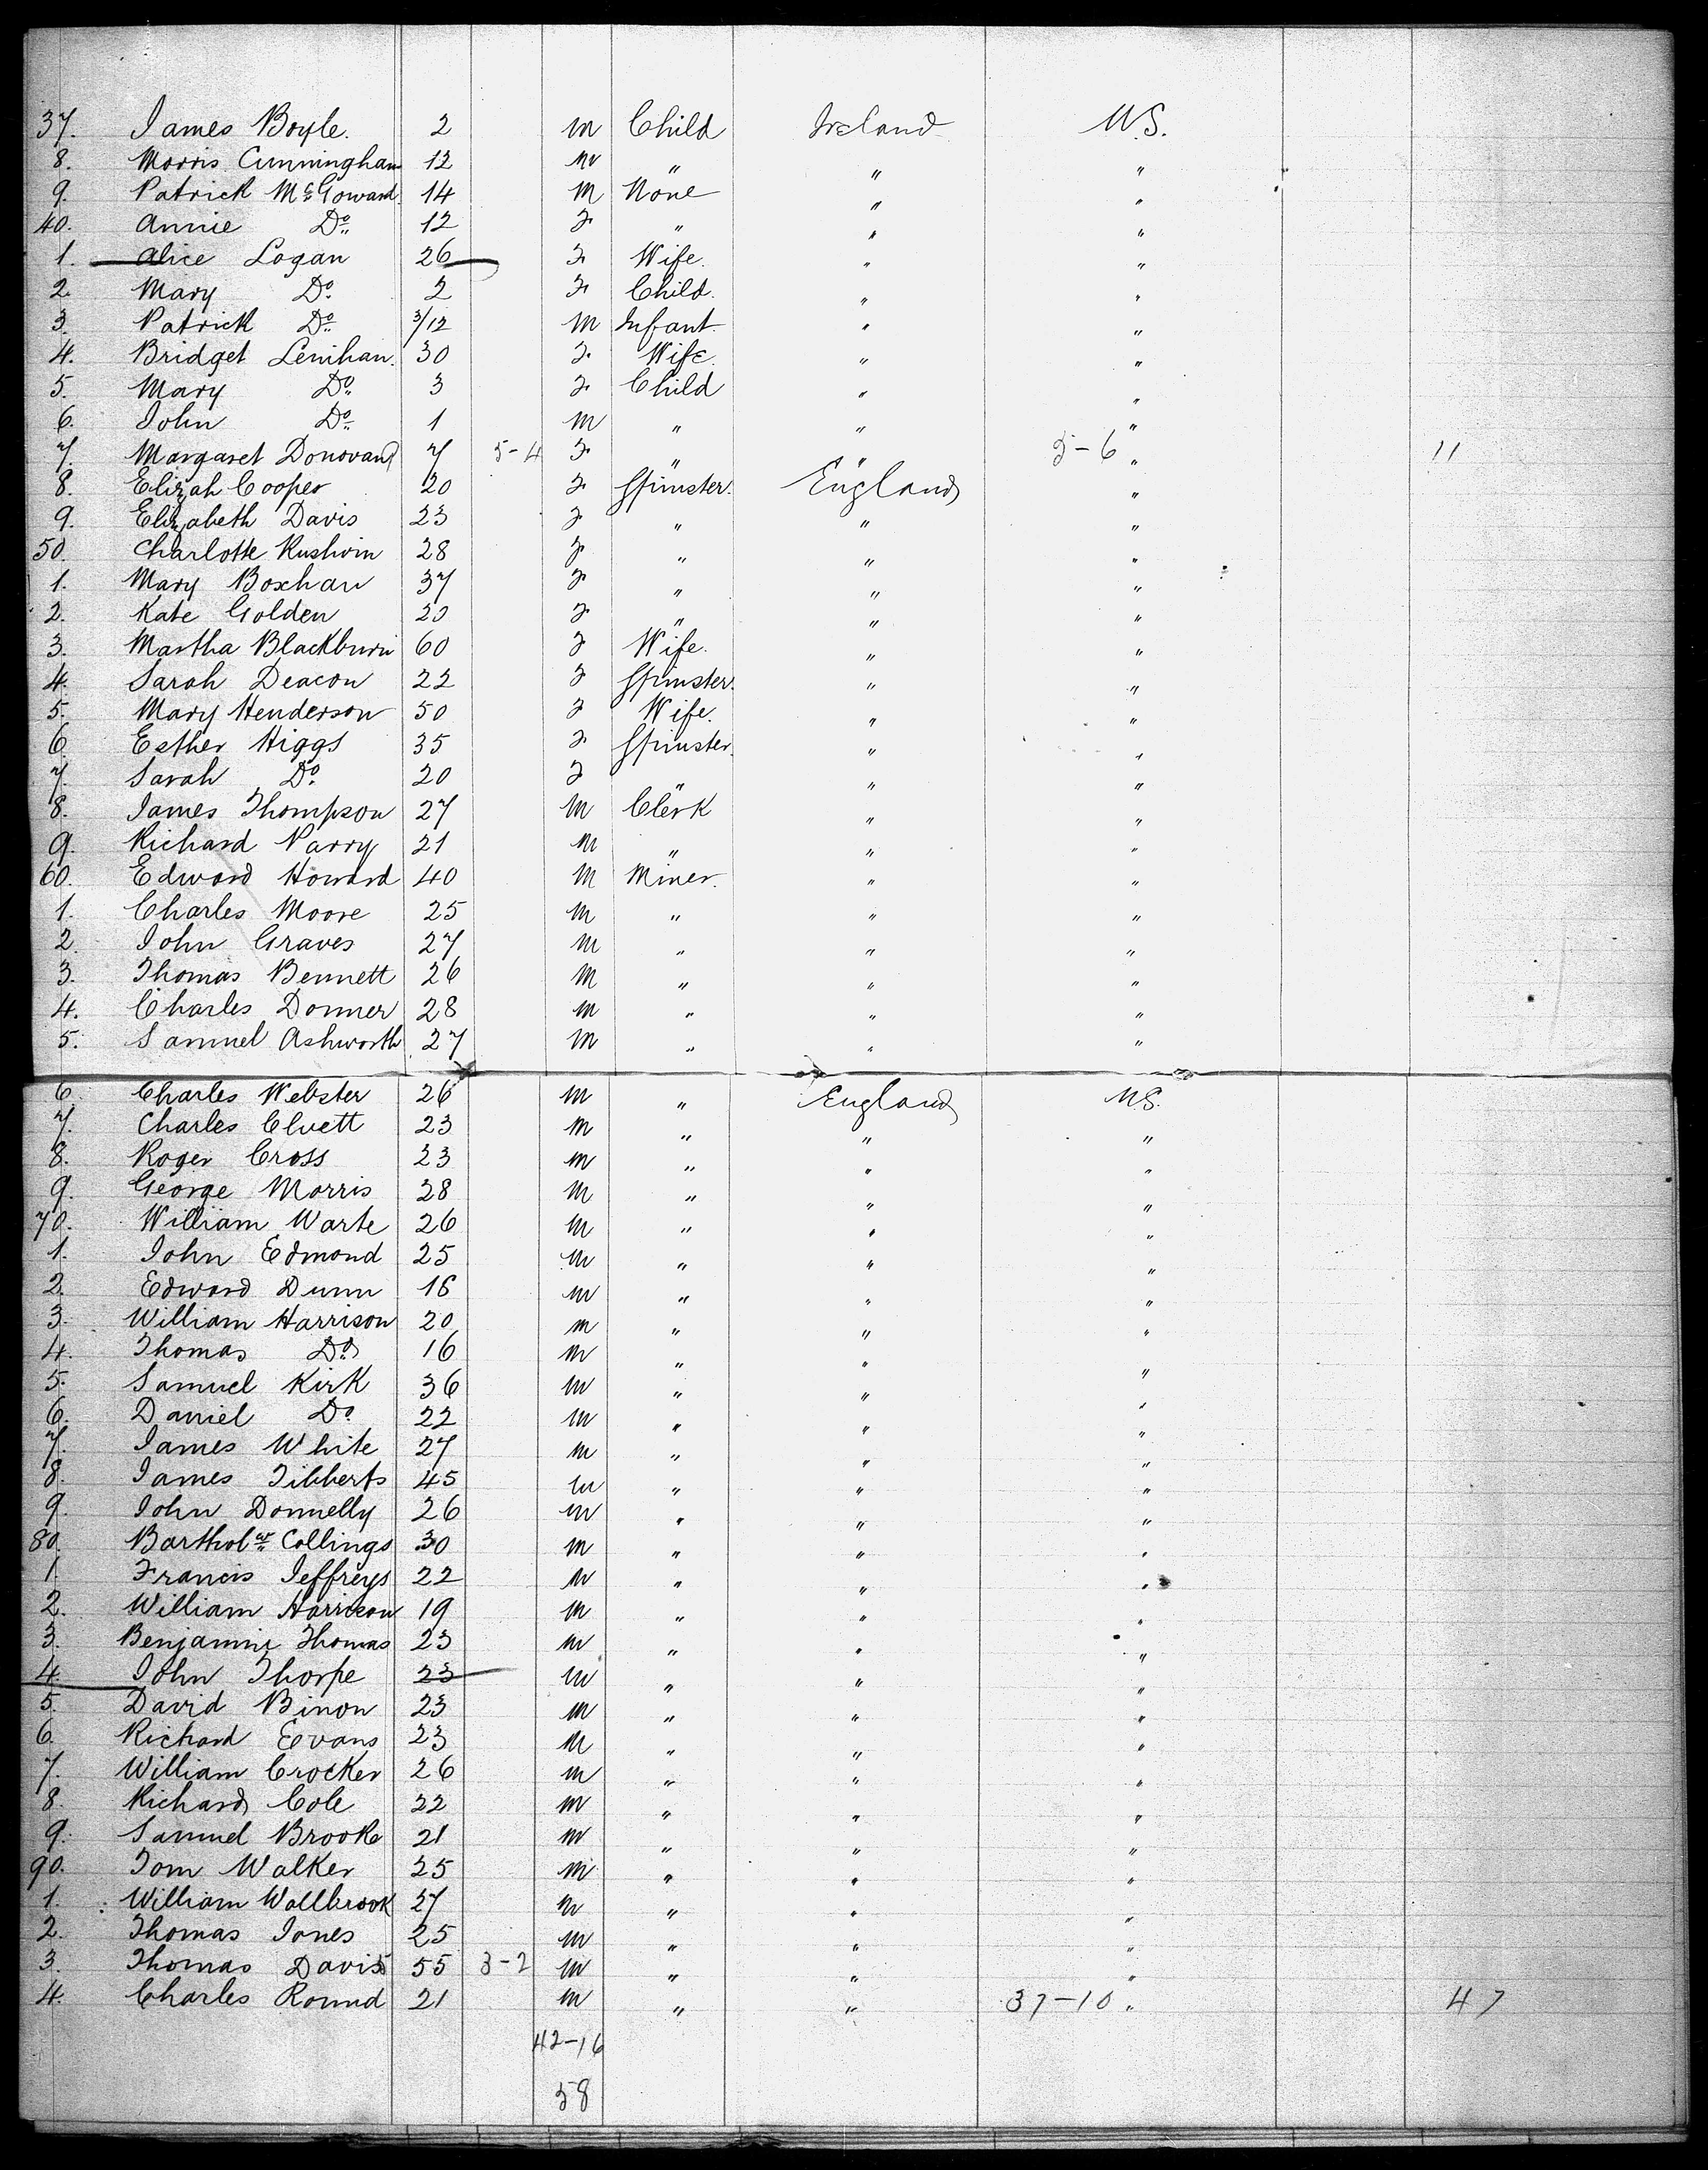 37. James Boyle. 2 m Child Ireland U.S.
8. Morris Cunningham 12 m " " "
9. Patrick McGoward. 14 m None " "
40. Annie Do 12 F " " "
1. Alice Logan 26 F Wife. " "
2. Mary Do. 2 F Child. " "
3. Patrick Do 3/12 m Infant. " "
4. Bridget Lenihan. 30 F. Wife. " "
5. Mary Do. 3 F. Child " "
6. John Do. 1 m " " "
7. Margaret Donovand 7 5-4 F. " " 5-6 " 11
8. Elizah Cooper 20 F. Spinster. England "
9. Elizabeth Davis 23 F " " "
50. Charlotte Rushwin 28 F. " " "
1. Mary Boxhan 37 F. " " "
2. Kate Golden 23 F. " " "
3. Martha Blackburn 60 F Wife. " "
4. Sarah Deacon 22 F Spinster. " "
5. Mary Henderson 50 F Wife. " "
6. Esther Higgs 35 F. Spinster. " "
7. Sarah Do. 20 F " " "
8. James Thompson 27 m Clerk " "
9. Richard Parry 21 m " " "
60. Edward Howard 40 m Miner. " "
1. Charles Moore 25 m " " "
2. John Graves 27 m " " "
3. Thomas Bennett 26 m " " "
4. Charles Donner 28 m " " "
5. Samuel Ashworth 27 m " " "
6. Charles Webster 26 m " England U.S.
7. Charles Cluett 23 m " " "
8. Roger Cross 23 m " " "
9. George Morris 28 m " " "
70. William Warte 26 m " " "
1. John Edmond 25 m " " "
2. Edward Dunn 18 m " " "
3. William Harrison 20 m " " "
4. Thomas Do. 16 m " " "
5. Samuel Kirk 36 m " " "
6. Daniel Do. 22 m " " "
7. James White 27 m " " "
8. James Tibberts 45 m " " "
9. John Donnelly 26 m " " "
80. Bartholw Collings 30 m " " "
1. Francis Jeffreys 22 m " " "
2. William Harrison 19 m " " "
3. Benjamine Thomas 23 m " " "
4. John Thorpe 23 m " " "
5. David Binon 23 m " " "
6. Richard Evans 23 m " " "
7. William Crocker 26 m " " "
8. Richard Cole 22 m " " "
9. Samuel Brooke 21 m " " "
90. Tom Walker 25 m " " "
1. William Wallbrook 27 m " " "
2. Thomas Jones 25 m " " "
3. Thomas Davis 55 3-2 m " " "
4. Charles Round 21 m " " 37-10 " 47
42-16
58